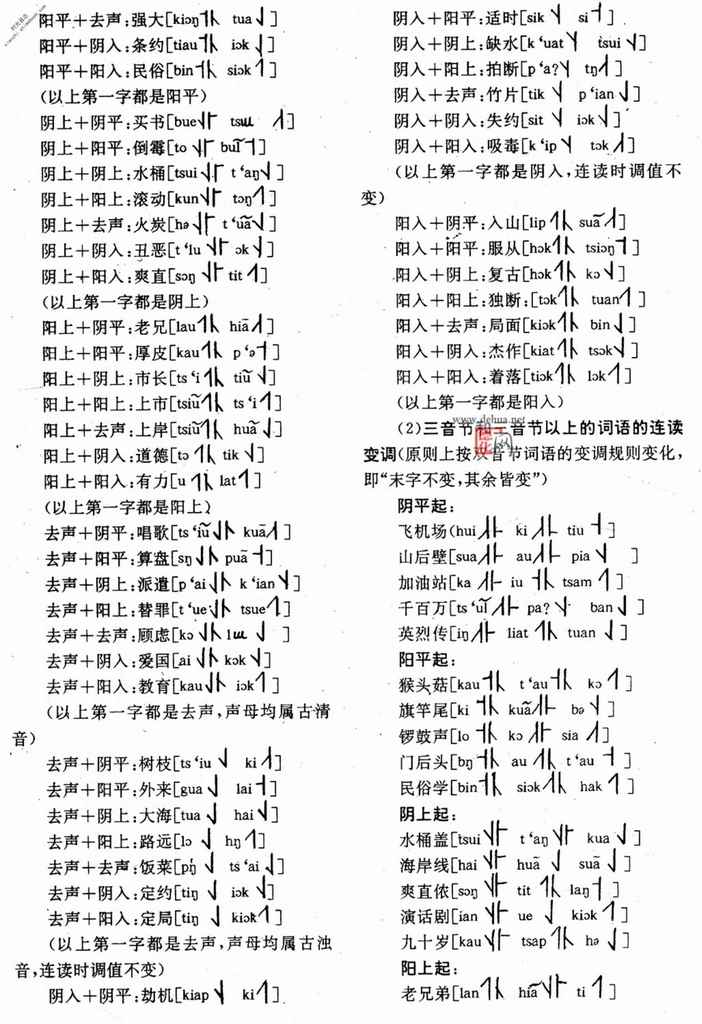 阳平+去声:强大[kiɔŋ tua]
阳平+阴入:条约[tiau iɔk]
阳平+阳入:民俗[bin siɔk]
(以上第一字都是阳平)
阴上+阴平:买书[bue tsɯ]
阴上+阳平:倒霉[to buĩ]
阴上+阴上:水桶[tsui t‘aŋ]
阴上+阳上:滚动[kun tɔŋ]
阴上+去声:火炭[hə t‘uã]
阴上+阴入:丑恶[t‘iu ɔk]
阴上+阳入:爽直[sɔŋ tit]
(以上第一字都是阴上)
阳上+阴平:老兄[lau hiã]
阳上+阳平:厚皮[kau p‘ə]
阳上+阴上:市长[ts‘i tiũ]
阳上+阳上:上市[tsiũ ts‘i]
阳上+去声:上岸[tsiũ huã]
阳上+阴入:道德[tɔ tik]
阳上+阳入:有力[u lat]
(以上第一字都是阳上)
去声+阴平:唱歌[ts‘iũ kuã]
去声+阳平:算盘[sŋ puã]
去声+阴上:派遣[p‘ai k‘ian]
去声+阳上:替罪[t‘ue tsue]
去声+去声:顾虑[kɔ lɯ]
去声+阴入:爱国[ai kɔk]
去声+阳入:教育[kau iɔk]
(以上第一字都是去声,声母均属古清
音)
去声+阴平:树枝[ts‘iu ki]
去声+阳平:外来[gua lai]
去声+阴上:大海[tua hai]
去声+阳上:路远[lɔ hŋ]
去声+去声:饭菜[pŋ ts‘ai]
去声+阴入:定约[tiŋ iɔk]
去声+阳入:定局[tiŋ kiɔk]
(以上第一字都是去声,声母均属古浊
音,连读时调值不变)
阴入+阴平:劫机[kiap ki]
阴入+阳平:适时[sik si]
阴入+阴上:缺水[k‘uat tsui]
阴入+阳上:拍断[p‘aʔ tŋ]
阴入+去声:竹片[tik p‘ian]
阴入+阴入:失约[sit iɔk]
阴入+阳入:吸毒[k‘ip tɔk]
(以上第一字都是阴入,连读时调值不
变)
阳入+阴平:入山[lip suã]
阳入+阳平:服从[hɔk tsiɔŋ]
阳入+阴上:复古[hɔk kɔ]
阳入+阳上:独断:[tɔk tuan]
阳入+去声:局面[kiɔk bin]
阳入+阴入:杰作[kiat tsɔk]
阳入+阳入:着落[tiɔk lɔk]
(以上第一字都是阳入)
www.dehua.net
(2)三音节和三音节以上的词语的连读
变调(原则上按双音节词语的变调规则变化,
即“末字不变,其余皆变”)
阴平起:
飞机场(hui ki tiu]
山后壁[sua au pia]
加油站[ka iu tsam]
千百万[ts‘uĩ paʔ ban]
英烈传[iŋ liat tuan]
阳平起:
猴头菇[kau t‘au kɔ]
旗竿尾[ki kuã bə]
锣鼓声[lo kɔ sia]
门后头[bŋ au t‘au]
民俗学[bin siɔk hak]
阴上起:
水桶盖[tsui t‘aŋ kua]
海岸线[hai huã suã]
爽直侬[sɔŋ tit laŋ]
演话剧[ian ue kiɔk]
九十岁[kau tsap hə]
阳上起:
老兄弟[lan hiã ti]